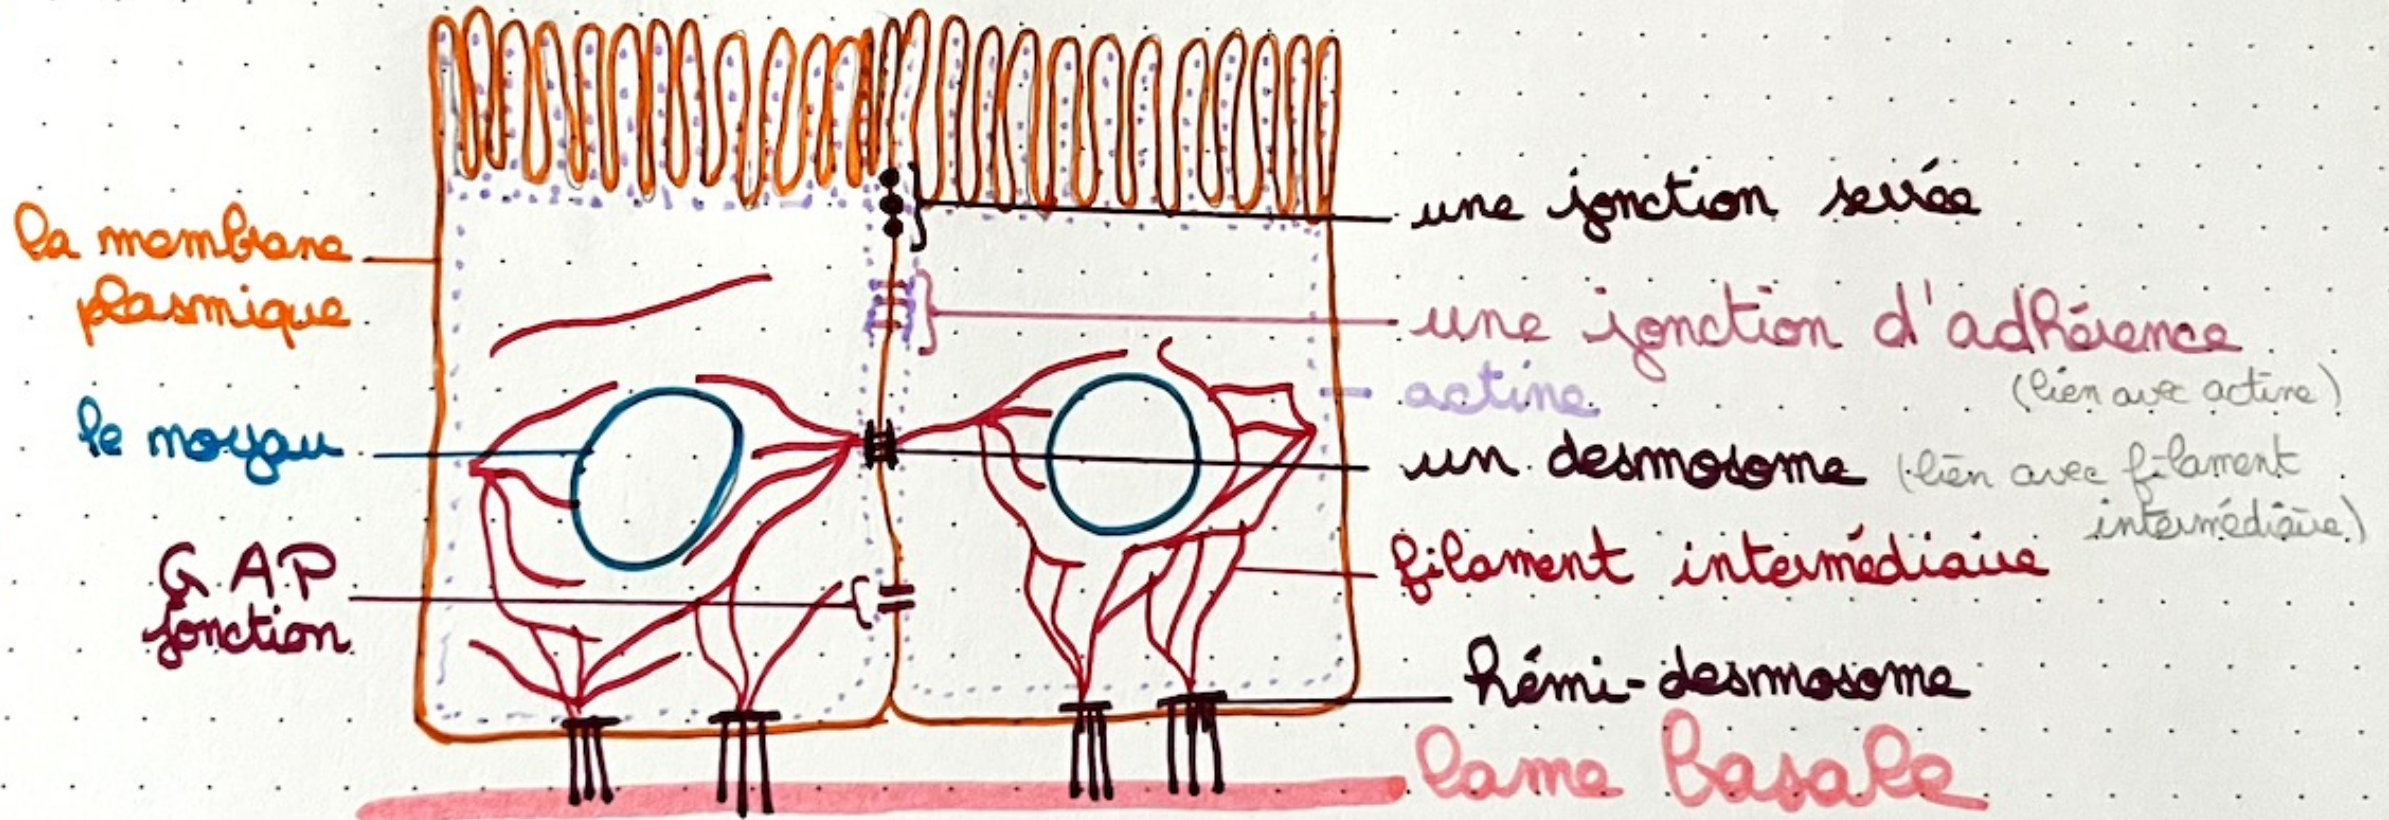 la membrane
plasmique
le noyau
GAP
jonction
une jonction serrée
une jonction d'adhérence
(lien avec actine)
actine
un desmosome (lien avec filament
intermédiaire)
filament intermédiaire
hémi-desmosome
lame basale